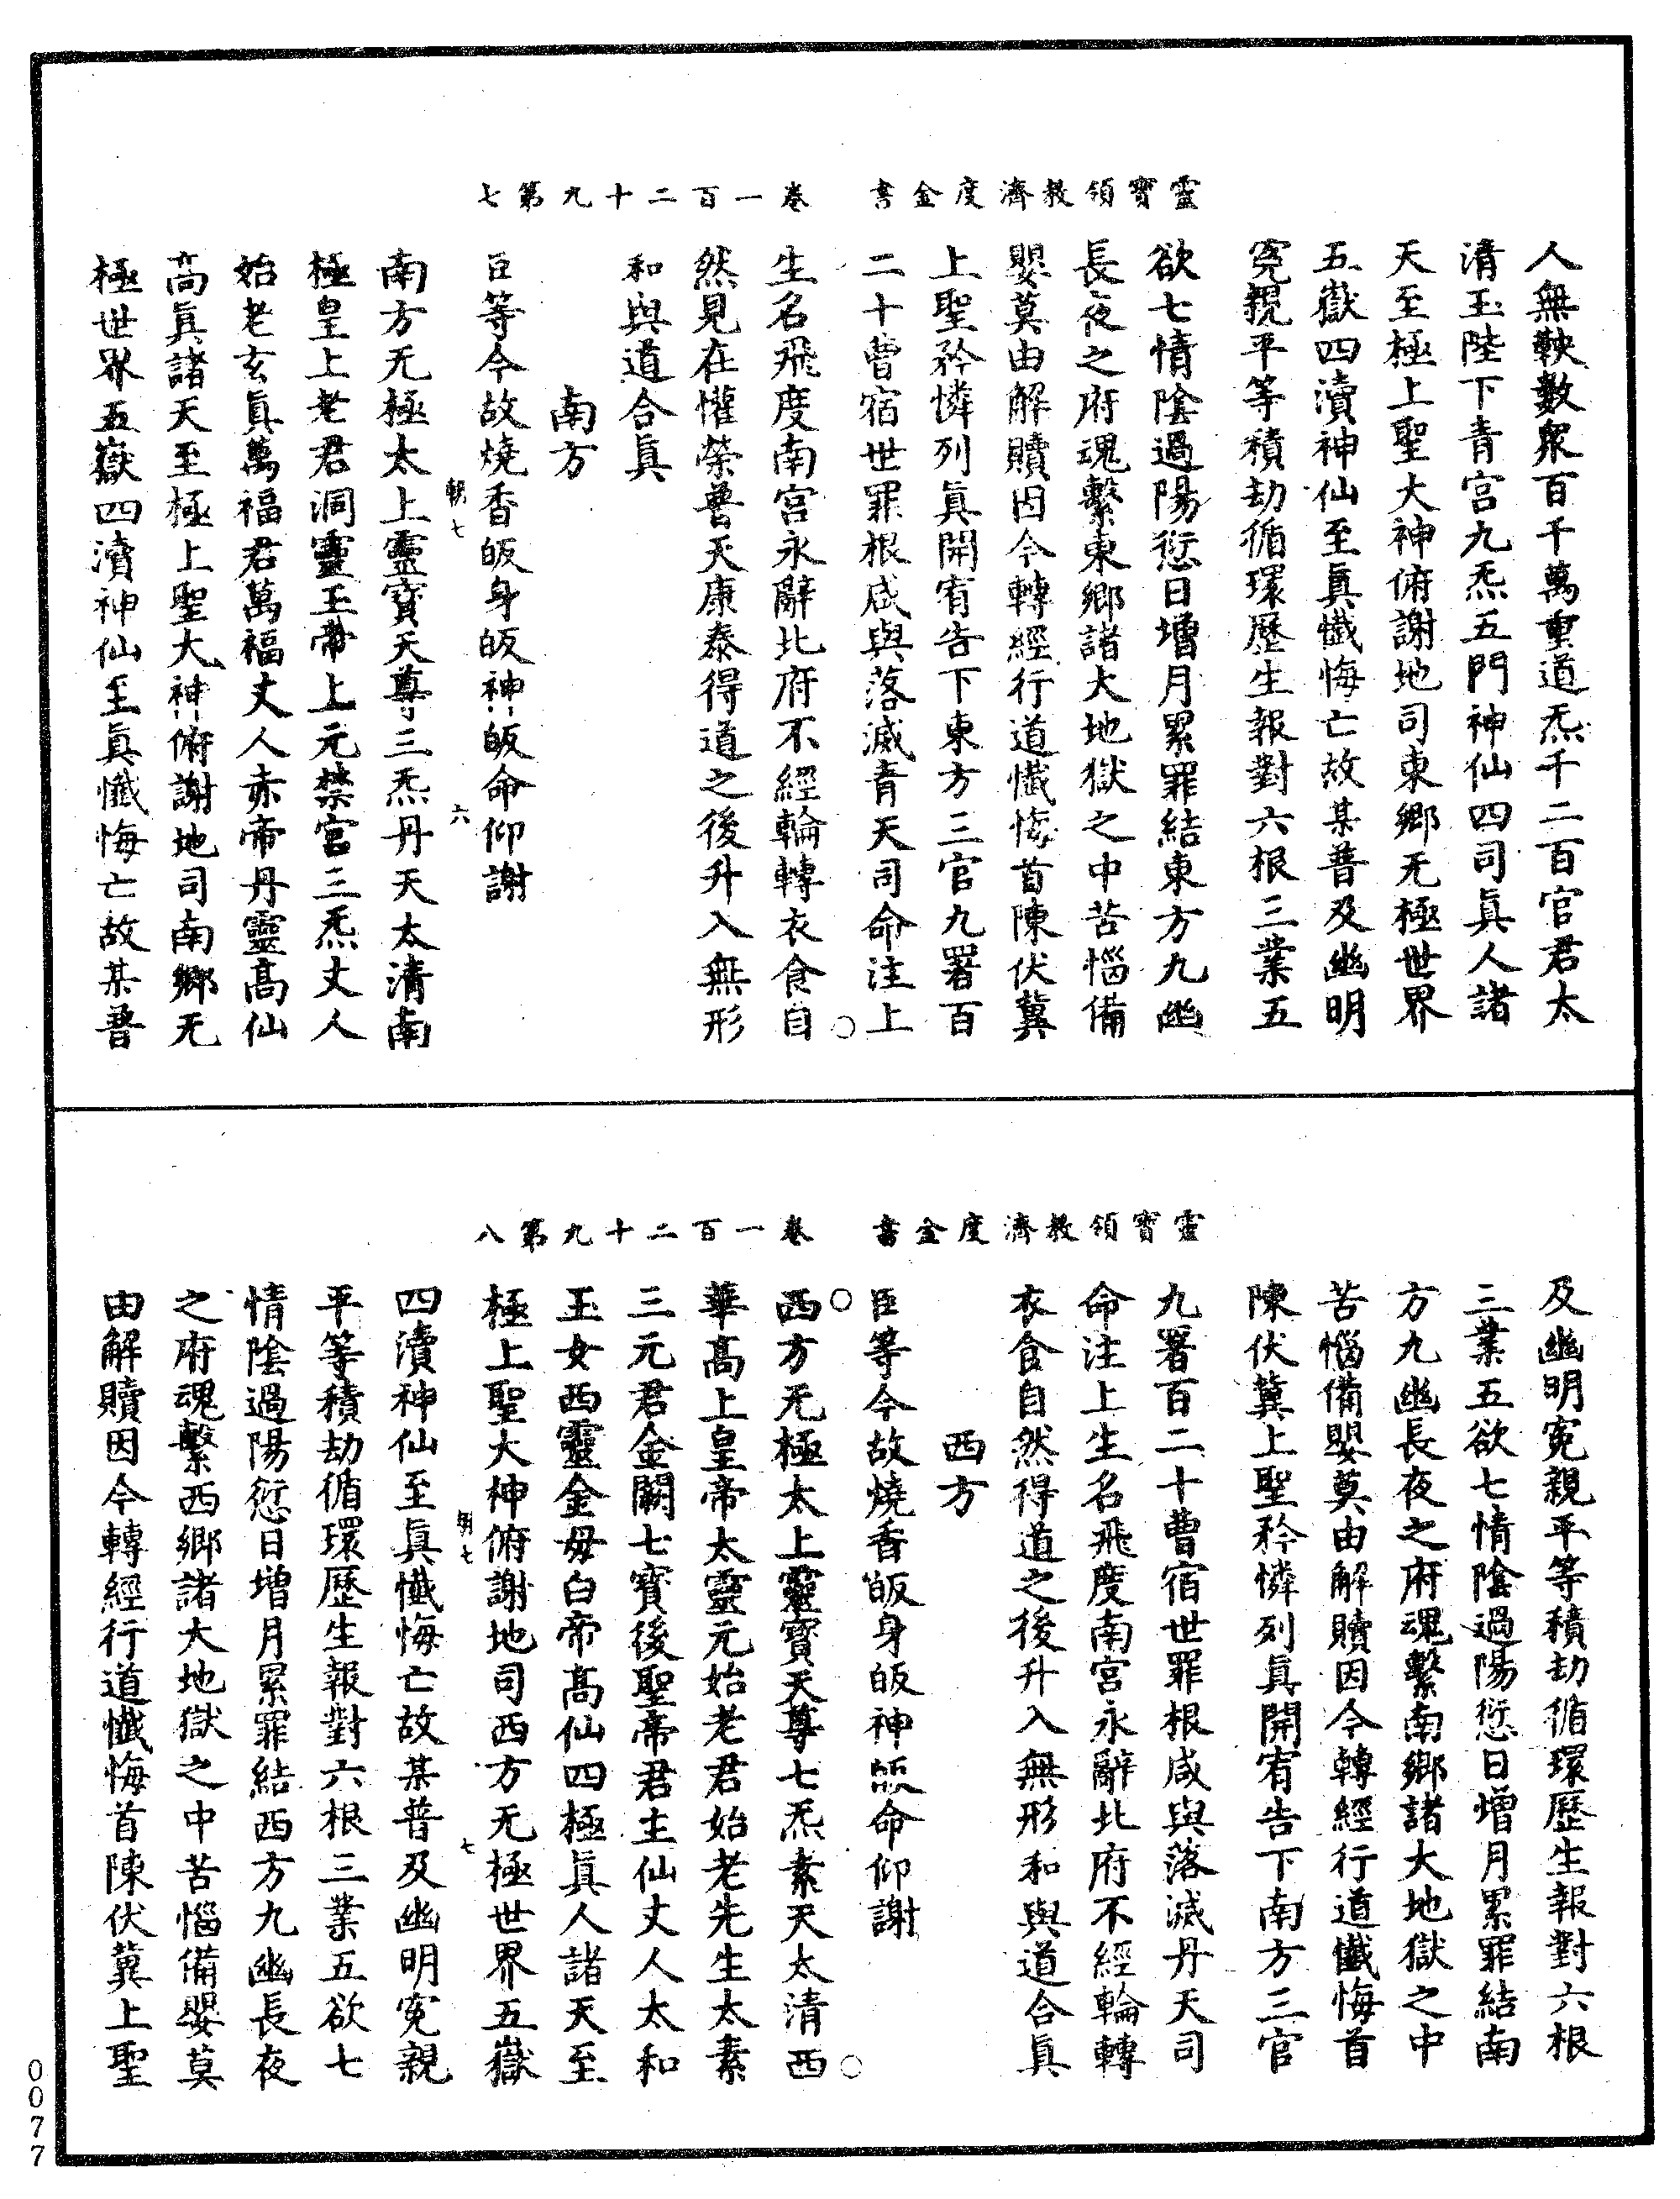 靈寶領教濟度金書　卷一百二十九第七
人無鞅數衆百千萬重道炁千二百官君太
清玉陛下青宫九炁五門神仙四司眞人諸
天至極上聖大神俯謝地司東鄉无極世界
五嶽四瀆神仙至眞懺悔亡故某普及幽明
寃親平等積劫循環歷生報對六根三業五
欲七情陰過陽愆日增月累罪結東方九幽
長夜之府魂繫東鄉諸大地獄之中苦惱備
嬰莫由解贖因今轉經行道懺悔首陳伏冀
上聖矜憐列眞開宥告下東方三官九署百
二十曹宿世罪根咸與落滅青天司命注上
生名飛度南宫永辭北府不經輪轉衣食自
然見在懽榮普天康泰得道之後升入無形
和與道合眞
南方
臣等今故燒香皈身皈神皈命仰謝
朝七　六
南方无極太上靈寶天尊三炁丹天太清南
極皇上老君洞靈玉帝上元禁宫三炁丈人
始老玄眞萬福君萬福丈人赤帝丹靈髙仙
髙眞諸天至極上聖大神俯謝地司南鄉无
極世界五嶽四瀆神仙至眞懺悔亡故某普
靈寶領教濟度金書　卷一百二十九第八
及幽明寃親平等積劫循環歷生報對六根
三業五欲七情陰過陽愆日增月累罪結南
方九幽長夜之府魂繫南鄉諸大地獄之中
苦惱備嬰莫由解贖因今轉經行道懺悔首
陳伏冀上聖矜憐列眞開宥告下南方三官
九署百二十曹宿世罪根咸與落滅丹天司
命注上生名飛度南宫永辭北府不經輪轉
衣食自然得道之後升入無形和與道合眞
西方
臣等今故燒香皈身皈神皈命仰謝
西方无極太上靈寶天尊七炁素天太清西
華髙上皇帝太靈元始老君始老先生太素
三元君金闕七寶後聖帝君主仙丈人太和
玉女西靈金毋白帝髙仙四極眞人諸天至
極上聖大神俯謝地司西方无極世界五嶽
朝七　七
四瀆神仙至眞懺悔亡故某普及幽明寃親
平等積劫循環歷生報對六根三業五欲七
情陰過陽愆日增月累罪結西方九幽長夜
之府魂繫西鄉諸大地獄之中苦惱備嬰莫
由解贖因今轉經行道懺悔首陳伏冀上聖
0077